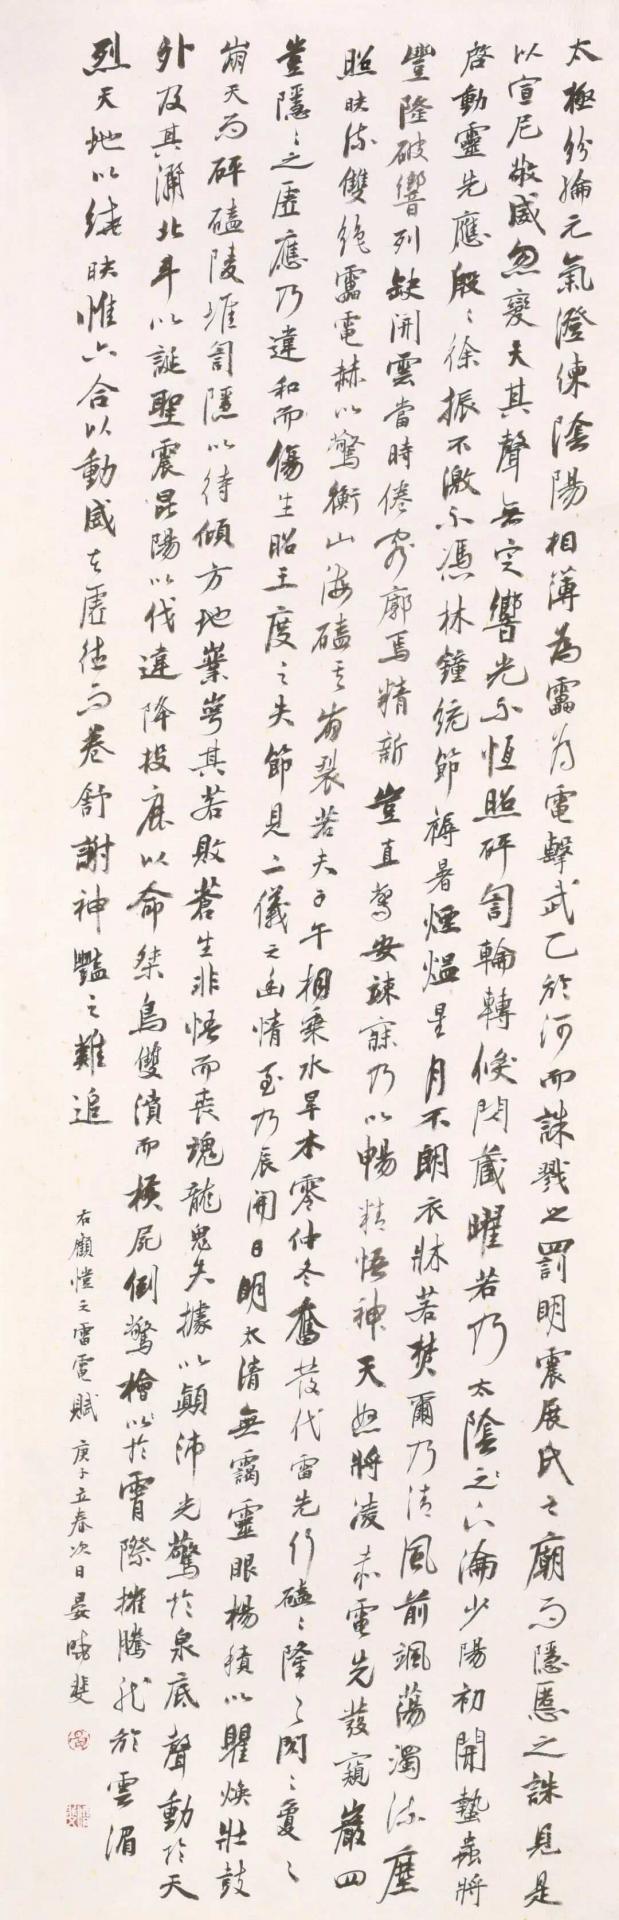 太極紛綸元氣澄練陰陽相薄為靁為電擊武乙於河而誅戮之罰明震展氏之廟而隱慝之誅見是
以宣尼敬威忽變夫其聲無定響光不恆照砰訇輪轉倏閃藏曜若乃太陰之淪少陽初開蟄蟲將
啓動靈先應殷〻徐振不激不憑林鐘統節溽暑煙煴星月不朗衣牀若焚爾乃清風前颯蕩濁流塵
豐隆破響列缺開雲當時倦容廓焉精新豈直驚安竦寐乃以暢精悟神天怒將凌赤電先發窺巖四
照映流雙絕靁電赫以驚衡山海磕其崩裂若夫子午相乘水旱木零仲冬奮發代雷先行磕〻隆〻閃〻夐〻
豈隱〻之虛應乃違和而傷生昭王度之失節見二儀之幽情至乃辰開日明太清無靄靈眼楊積以瞿煥壯鼓
崩天而砰磕陵堆訇隱以待傾方地業崿其若敗蒼生非悟而喪魂龍鬼失據以顛沛光驚於泉底聲動於天
外及其灑北斗以誕聖震昆陽以伐違降投鹿以命桀島雙漬而橫尻倒驚檜以於霄際摧騰龍於雲湄
烈天地以繞映惟六合以動威在虛德而卷舒謝神豔之難追
右顧愷之雷電賦 庚子立春次日晏曉斐